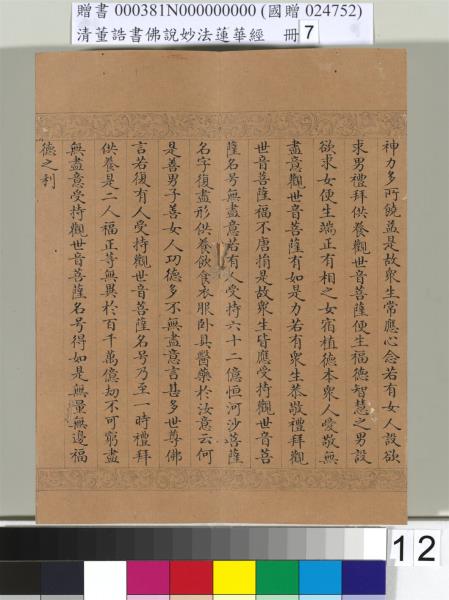 贈書 000381N000000000 (國贈 024752)
清董誥書佛說妙法蓮華經 冊 7
神力多所饒益是故眾生常應心念若有女人設欲
求男禮拜供養觀世音菩薩便生福德智慧之男設
欲求女便生端正有相之女宿植德本眾人愛敬無
盡意觀世音菩薩有如是力若有眾生恭敬禮拜觀
世音菩薩福不唐捐是故眾生皆應受持觀世音菩
薩名号無盡意若有人受持六十二億恒河沙菩薩
名字復盡形供養飲食衣服卧具醫藥於汝意云何
是善男子善女人功德多不無盡意言甚多世尊佛
言若復有人受持觀世音菩薩名号乃至一時禮拜
供養是二人福正等無異於百千萬億劫不可窮盡
無盡意受持觀世音菩薩名号得如是無量無邊福
德之利
12